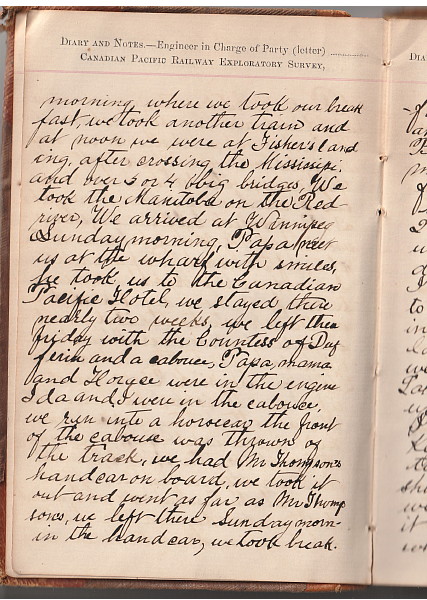 DIARY AND NOTES.—Engineer in Charge of Party (letter)
CANADIAN PACIFIC RAILWAY EXPLORATORY SURVEY,
morning, where we took our break
fast, we took another train and
at noon we were at Fisher's land
ing, after crossing the Missisipi.
and over 3 or 4 big bridges, We
took the Manitoba on the Red
river, We arrived at Winnipeg
Sunday morning, Papa meet
us at the wharf with smiles,
he took us to the Canadian
Pacific Hotel, we stayed there
nearly two weeks, we left then
friday with the Countess of Duf
ferin and a caboice, Papa, mama
and Horyce were in the engine
Ida and I were in the cabouce,
we run into a horsecar the front
of the cabouse was thrown of
the track, we had Mr Thompsons
handcar on board, we took it
out and went as far as Mr Thomp
sons, we left there Sunday morn-
in the handcar, we took break.
DIA